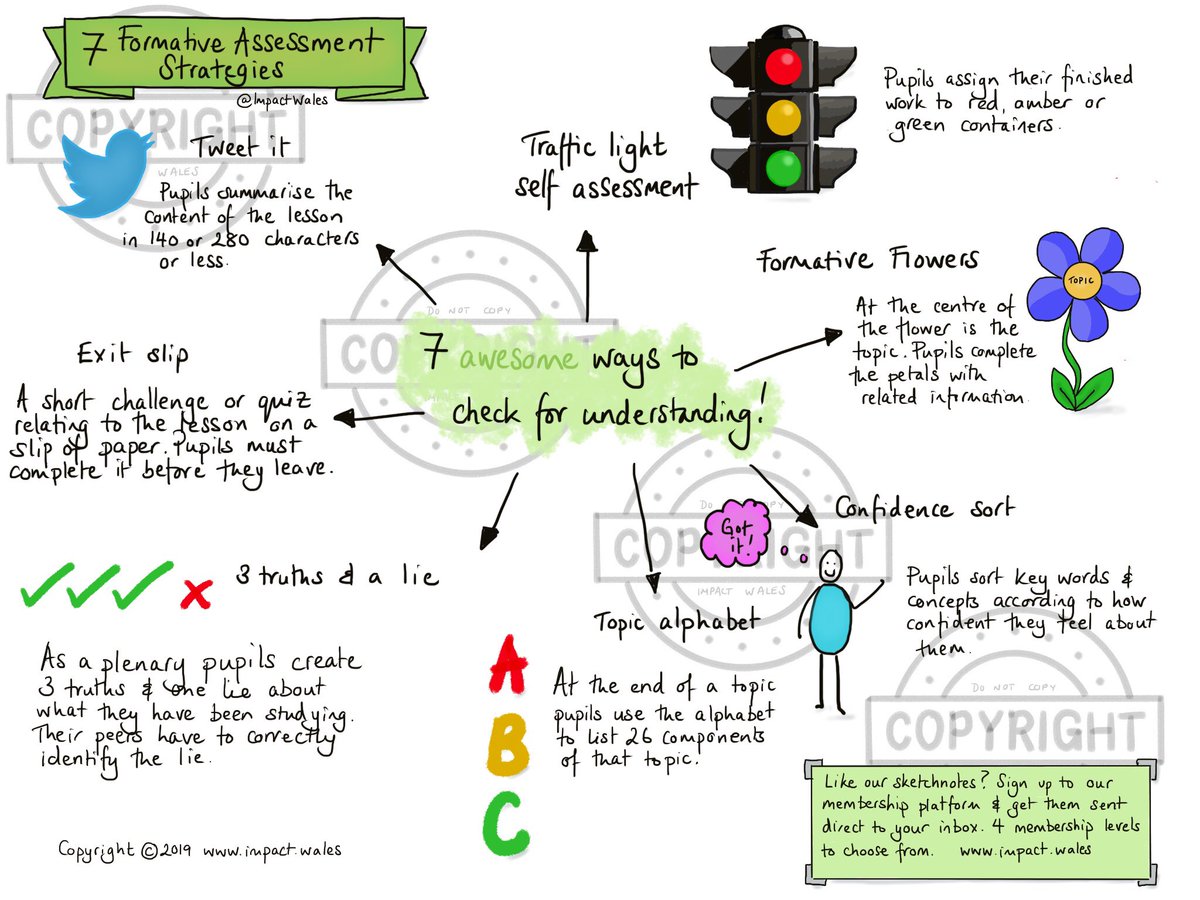 7 Formative Assessment
Strategies
@ImpactWales
COPYRIGHT
WALES
Tweet it
Pupils summarise the
content of the lesson
in 140 or 280 characters
or less.
Traffic light
self assessment
Pupils assign their finished
work to red, amber or
green containers.
Formative Flowers
TOPIC
At the centre of
the flower is the
topic. Pupils complete
the petals with
related information.
DO NOT COPY
COPYRIGHT
7 awesome ways to
check for understanding!
Exit slip
A short challenge or quiz
relating to the lesson on a
slip of paper. Pupils must
complete it before they leave.
Confidence sort
Got
it!
DO NOT COPY
COPYRIGHT
IMPACT WALES
Pupils sort key words &
concepts according to how
confident they feel about
them.
3 truths & a lie
As a plenary pupils create
3 truths & one lie about
what they have been studying.
Their peers have to correctly
identify the lie.
Topic alphabet
A
B
C
At the end of a topic
pupils use the alphabet
to list 26 components
of that topic.
DO NOT COPY
COPYRIGHT
Like our sketchnotes? Sign up to our
membership platform & get them sent
direct to your inbox. 4 membership levels
to choose from. www.impact.wales
Copyright ©2019 www.impact.wales